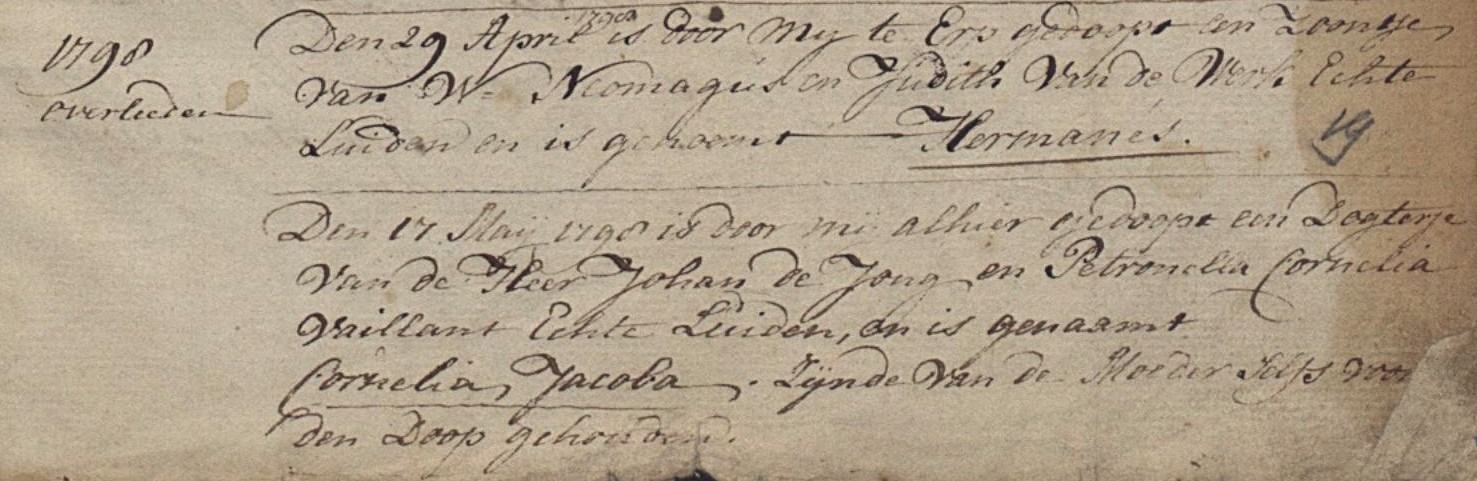 1798
overleeden
Den 29 April 1798 is door My te Erp gedoopt een Zoontje,
van W= Neomagus en Judith Van de Werk Echte
Luiden en is genoemt Hermanes.
19
Den 17 Maÿ 1798 is door mij alhier gedoopt een Dogterje
van de Heer Johan de Jong en Petronella Cornelia
Vaillant Echte Luiden, en is genaamt
Cornelia, Jacoba. Zÿnde van de Moeder selfs voor
den Doop gehouden.